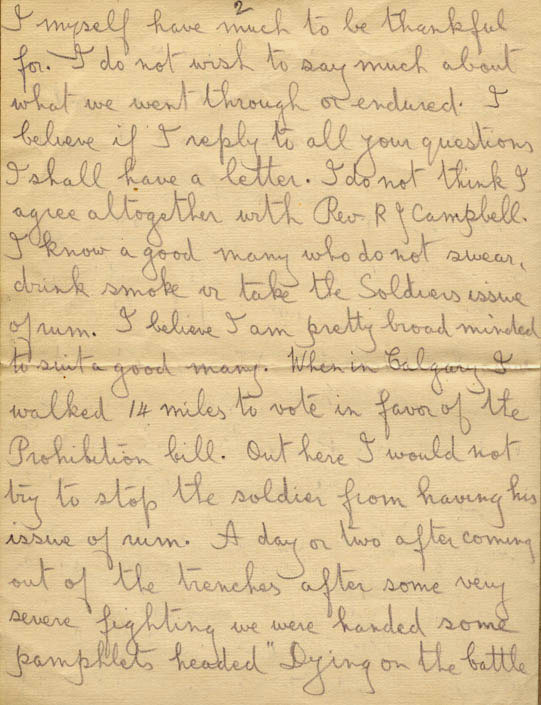 2
I myself have much to be thankful
for. I do not wish to say much about
what we went through or endured. I
believe if I reply to all your questions
I shall have a letter. I do not think I
agree altogether with Rev. R J Campbell.
I know a good many who do not swear,
drink smoke or take the Soldiers issue
of rum. I believe I am pretty broad minded
to suit a good many. When in Calgary I
walked 14 miles to vote in favor of the
Prohibition bill. Out here I would not
try to stop the soldier from having his
issue of rum. A day or two after coming
out of the trenches after some very
severe fighting we were handed some
pamphlets headed "Dying on the battle